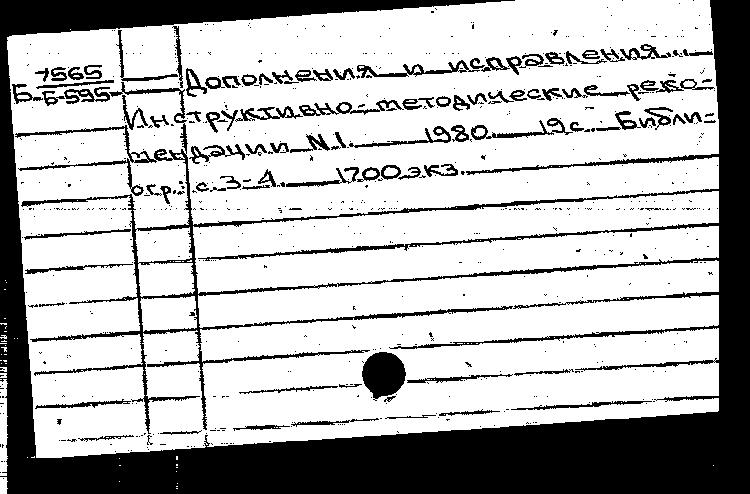 7565
Б-Б-595
Дополнения и исправления...
Инструктивно-методические реко-
мендации N1. 1980. 19с. Библи-
огр.: с. 3-4. 1700 экз.